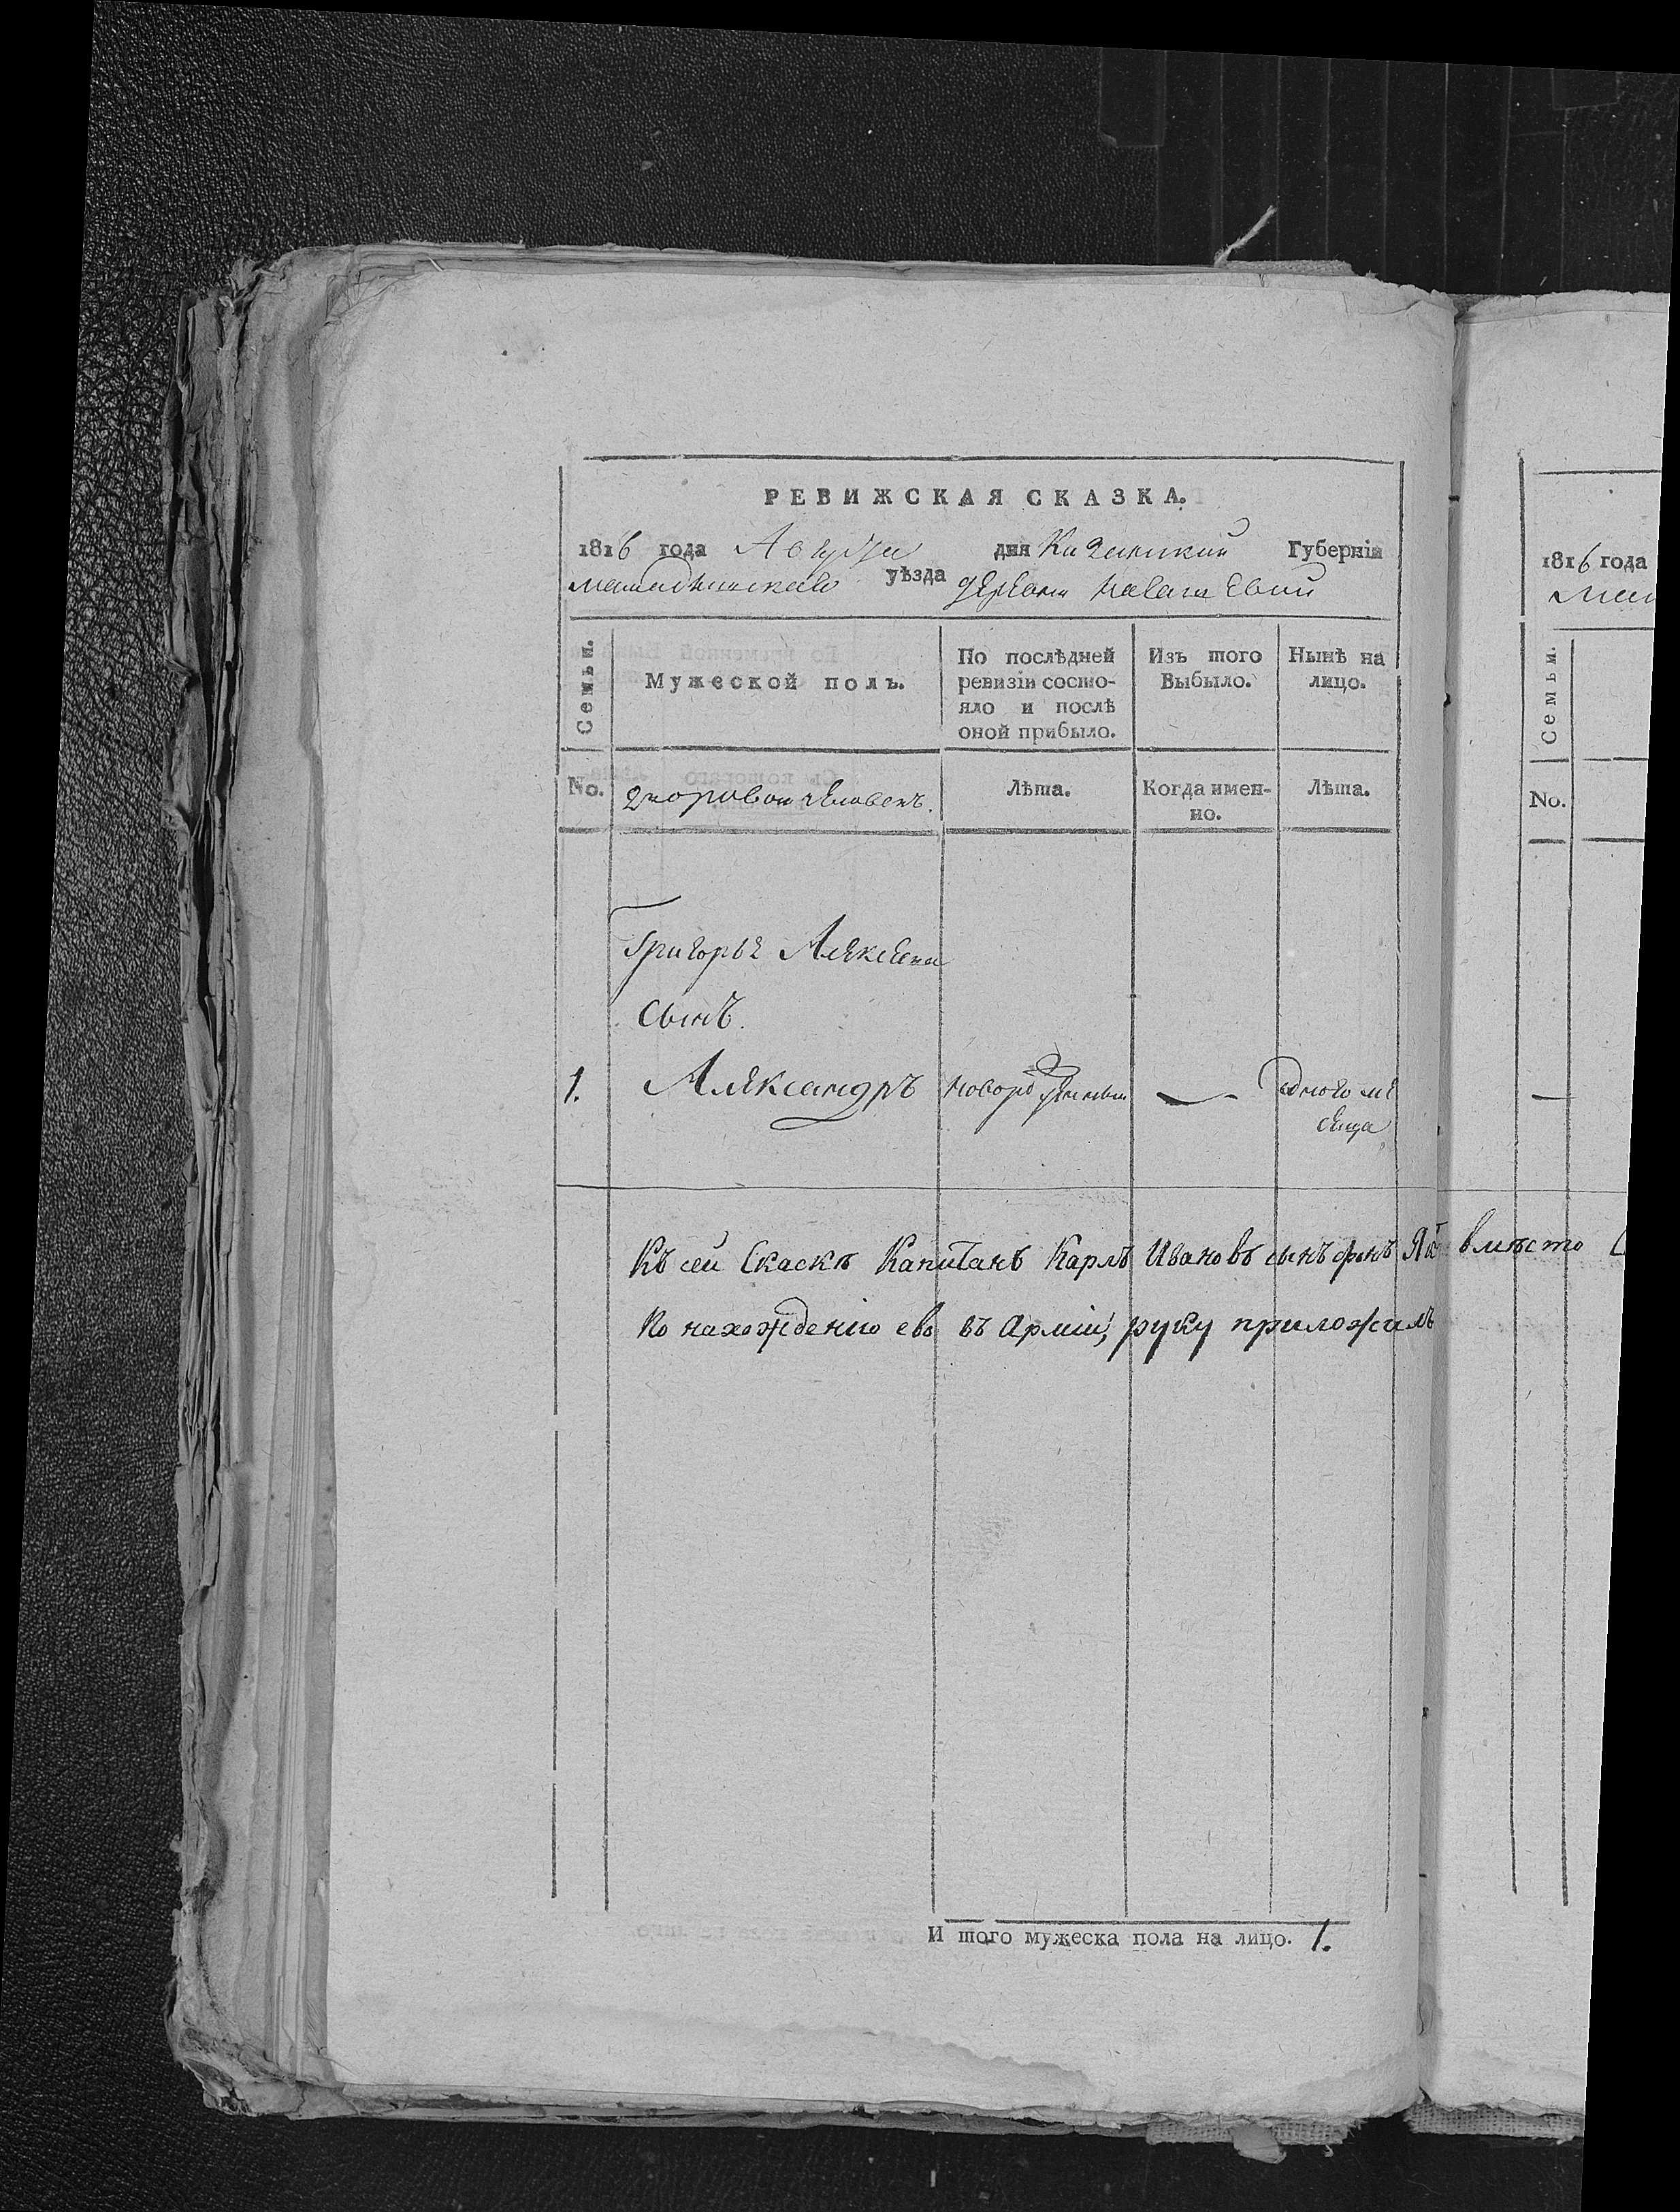 РЕВИЖСКАЯ СКАЗКА.
1816 года дня Губернїи
уѣзда деревни
Семьи.
Мужеской полъ.
По послѣдней ревизїи состо-
яло и послѣ
оной прибыло.
Изъ того
Выбыло.
Нынѣ на
лицо.
No.
Лѣта.
Когда имен-
но.
Лѣта.
Григорья Алексеева
сынъ.
1. Александръ новорожденный — одного ме
сеца
Къ сей Скаскѣ Капитанъ Карлъ Ивановъ сынъ фонъ вмѣсто
По нахожденію ево въ Арміи, руку приложилъ
И того мужеска пола на лицо. 1.
1816 года
Семьи.
No.
—